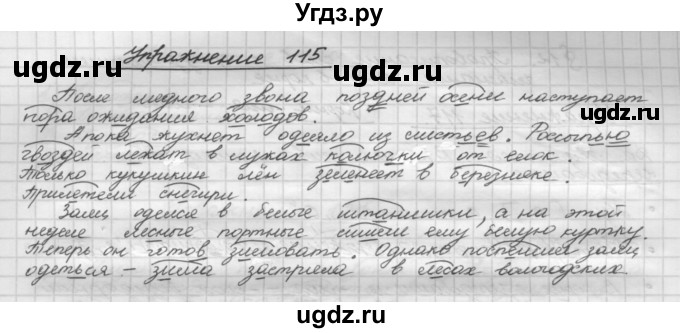 Угдз.ру
Упражнение 115
После медного звона поздней осени наступает
пора ожидания холодов.
А пока жухнет одеяло из листьев. Россыпью
гвоздей лежат в лужах колючки от елок.
Только кукушкин лён зеленеет в березняке.
Прилетели снегири.
Заяц оделся в белые штанишки, а на этой
неделе лесные портные сшили ему белую куртку.
Теперь он готов зимовать. Однако поспешил заяц
одеться – зима застряла в лесах вологодских
ugdz.ru
ugdz.ru
ugdz.ru
ugdz.ru
ugdz.ru
ugdz.ru
ugdz.ru
ugdz.ru